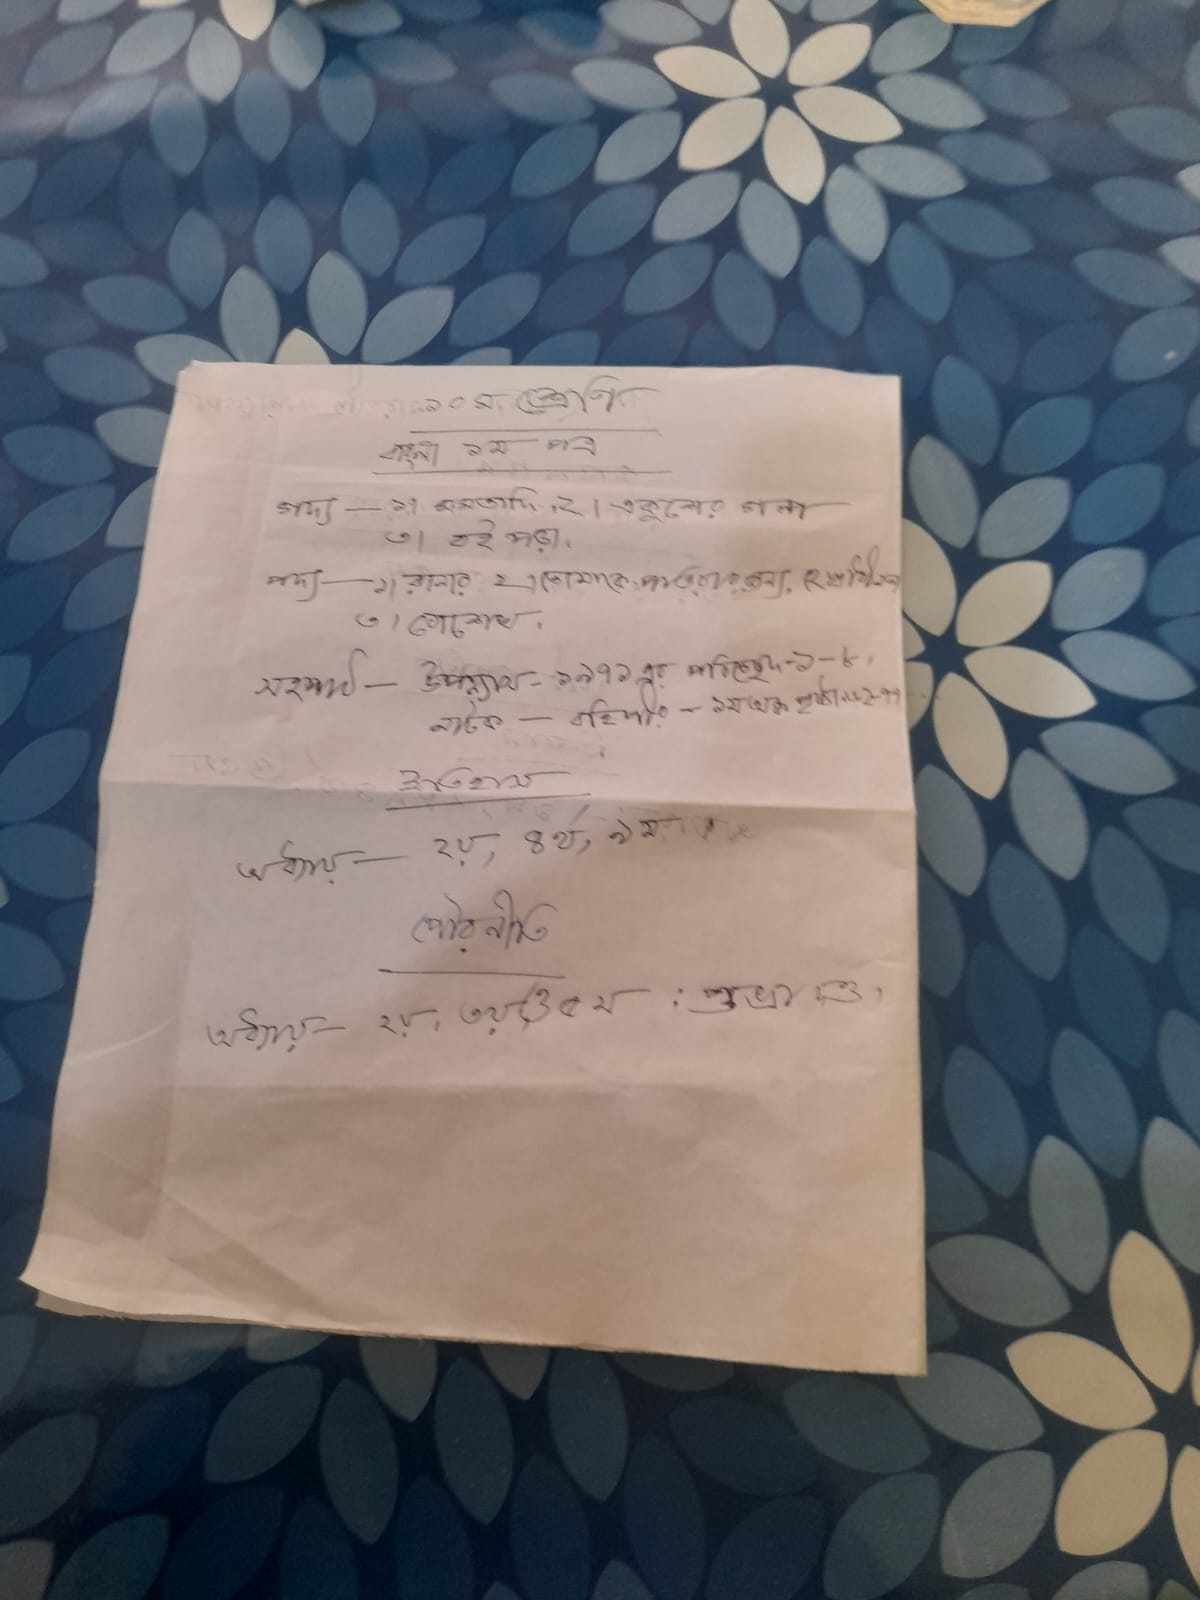 ১০ম শ্রেণি
বাংলা ১ম পত্র
গদ্য — ১। মমতাদি, ২। একুশের গল্প
৩। বই পড়া।
পদ্য — ১। রানার ২। তোমাকে পাওয়ার জন্য, হে স্বাধীনতা
৩। বোশেখ।
সহপাঠ — উপন্যাস - ১৯৭১ এর পরিচ্ছেদ-১-৮।
নাটক — বহিপীর - ১ম অঙ্ক পৃষ্ঠা
ইতিহাস
অধ্যায় — ২য়, ৪র্থ, ৯ম
পৌরনীতি
অধ্যায় — ২য়, ৩য়, ও ৫ম